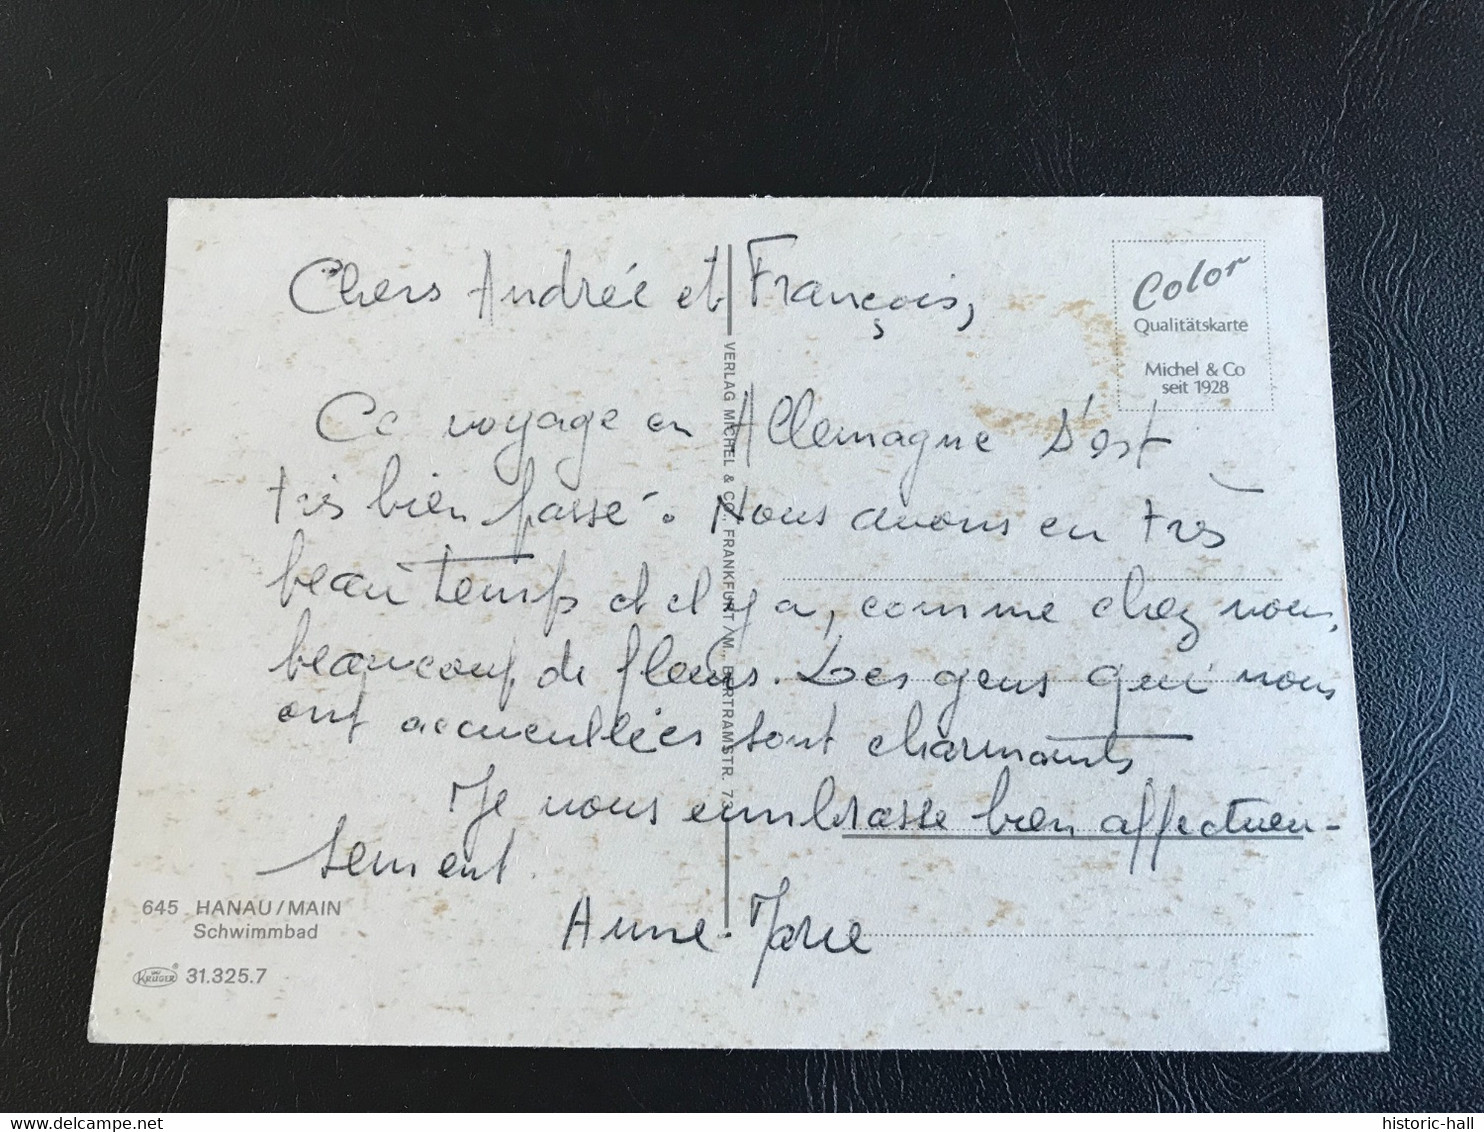 Chers Andrée et François,
Ce voyage en Allemagne s'est
très bien passé. Nous avons eu très
beau temps et il y a, comme chez nous,
beaucoup de fleurs. Les gens qui nous
ont accueillies sont charmants
Je vous embrasse bien affectueu-
sement.
Anne-Marie
Color
Qualitätskarte
Michel & Co
seit 1928
VERLAG MICHEL & CO., FRANKFURT/M., BERTRAMSTR. 73
645 HANAU/MAIN
Schwimmbad
KRÜGER 31.325.7
historic-hall